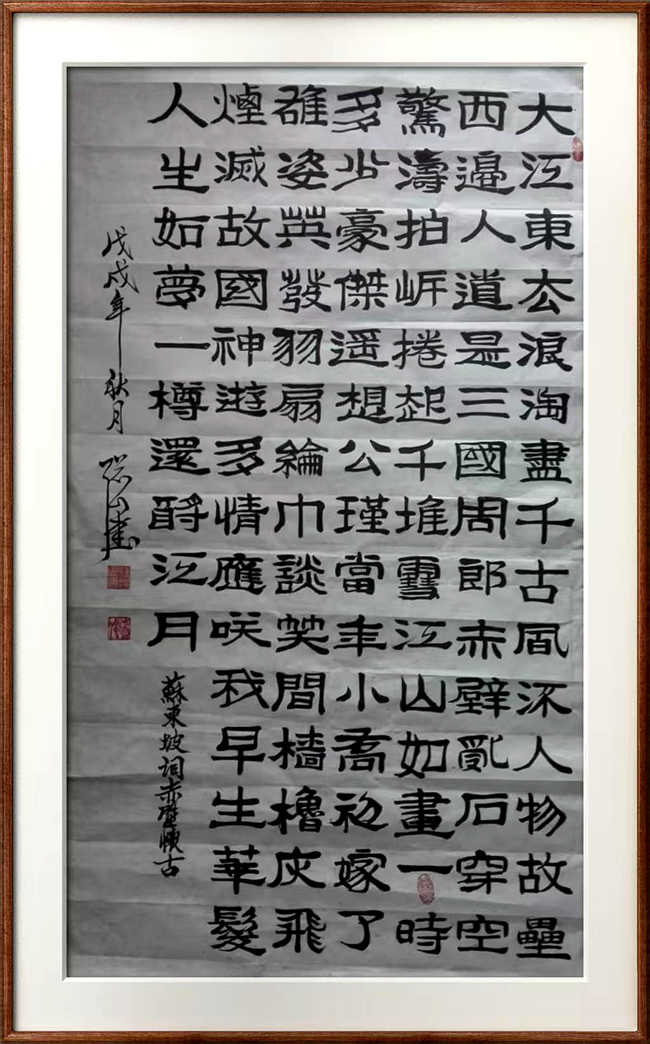 大江東去浪淘盡千古風流人物故壘
西邊人道是三國周郎赤壁亂石穿空
驚濤拍岸捲起千堆雪江山如畫一時
多少豪傑遥想公瑾當年小喬初嫁了
雄姿英發羽扇綸巾談笑間檣櫓灰飛
煙滅故國神遊多情應咲我早生華髮
人生如夢一樽還酹江月
蘇東坡詞赤壁懷古
戊戌年秋月